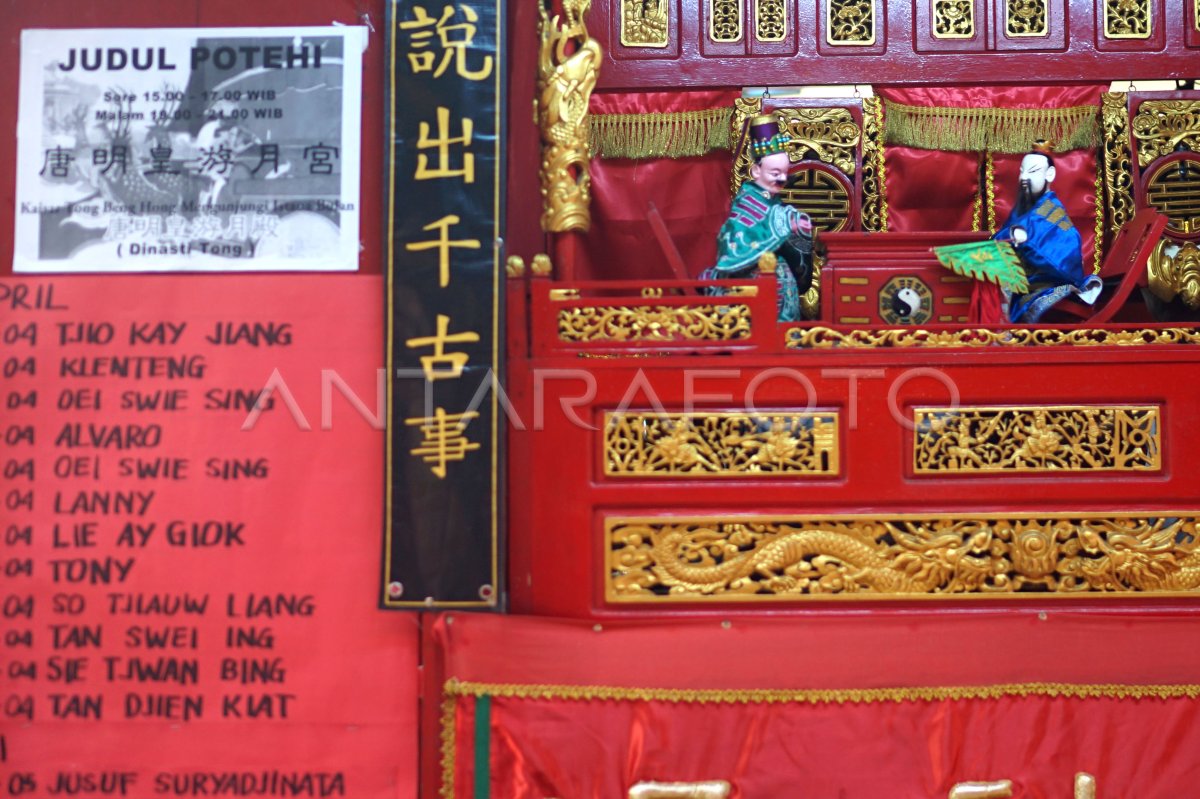 JUDUL POTEHI
Sore 15.00 - 17.00 WIB
Malam 18.00 - 21.00 WIB
唐明皇游月宮
Kaisar Tong Beng Hong Mengunjungi Istana Bulan
唐明皇游月殿
( Dinasti Tong )
PRIL
04 TJIO KAY JIANG
04 KLENTENG
04 OEI SWIE SING
04 ALVARO
04 OEI SWIE SING
04 LANNY
04 LIE AY GIOK
04 TONY
04 SO TJIAUW LIANG
04 TAN SWEI ING
04 SIE TJWAN BING
04 TAN DJIEN KIAT
05 JUSUF SURYADJINATA
說出千古事
ANTARAFOTO